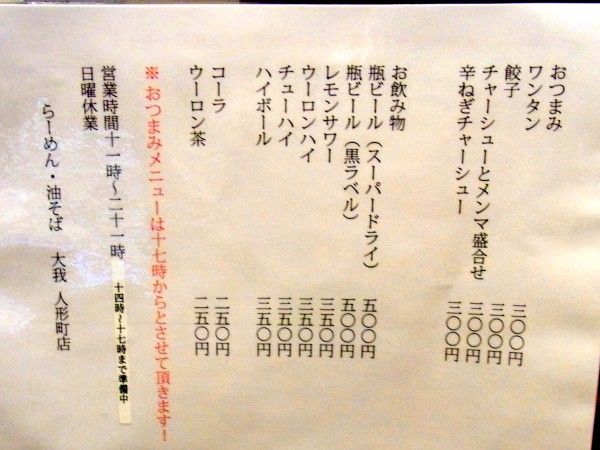 おつまみ
ワンタン 三〇〇円
餃子 三〇〇円
チャーシューとメンマ盛合せ 三〇〇円
辛ねぎチャーシュー 三〇〇円
お飲み物
瓶ビール（スーパードライ） 五〇〇円
瓶ビール（黒ラベル） 五〇〇円
レモンサワー 三五〇円
ウーロンハイ 三五〇円
チューハイ 三五〇円
ハイボール 三五〇円
コーラ 二五〇円
ウーロン茶 二五〇円
※おつまみメニューは十七時からとさせて頂きます！
営業時間十一時～二十一時 十四時～十七時まで準備中
日曜休業
らーめん・油そば 大我 人形町店